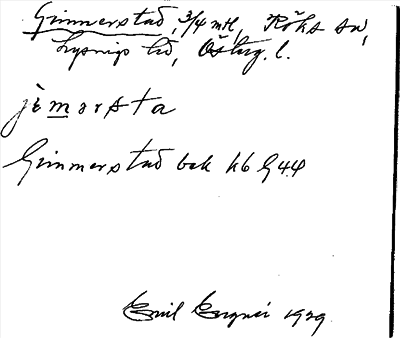 Gimmerstad, 3/4 mtl, Röks sn,
Lysings hd, Östерg. l.
jè m ə r s t a
Gimmerstad bek kb G44
Emil 1929